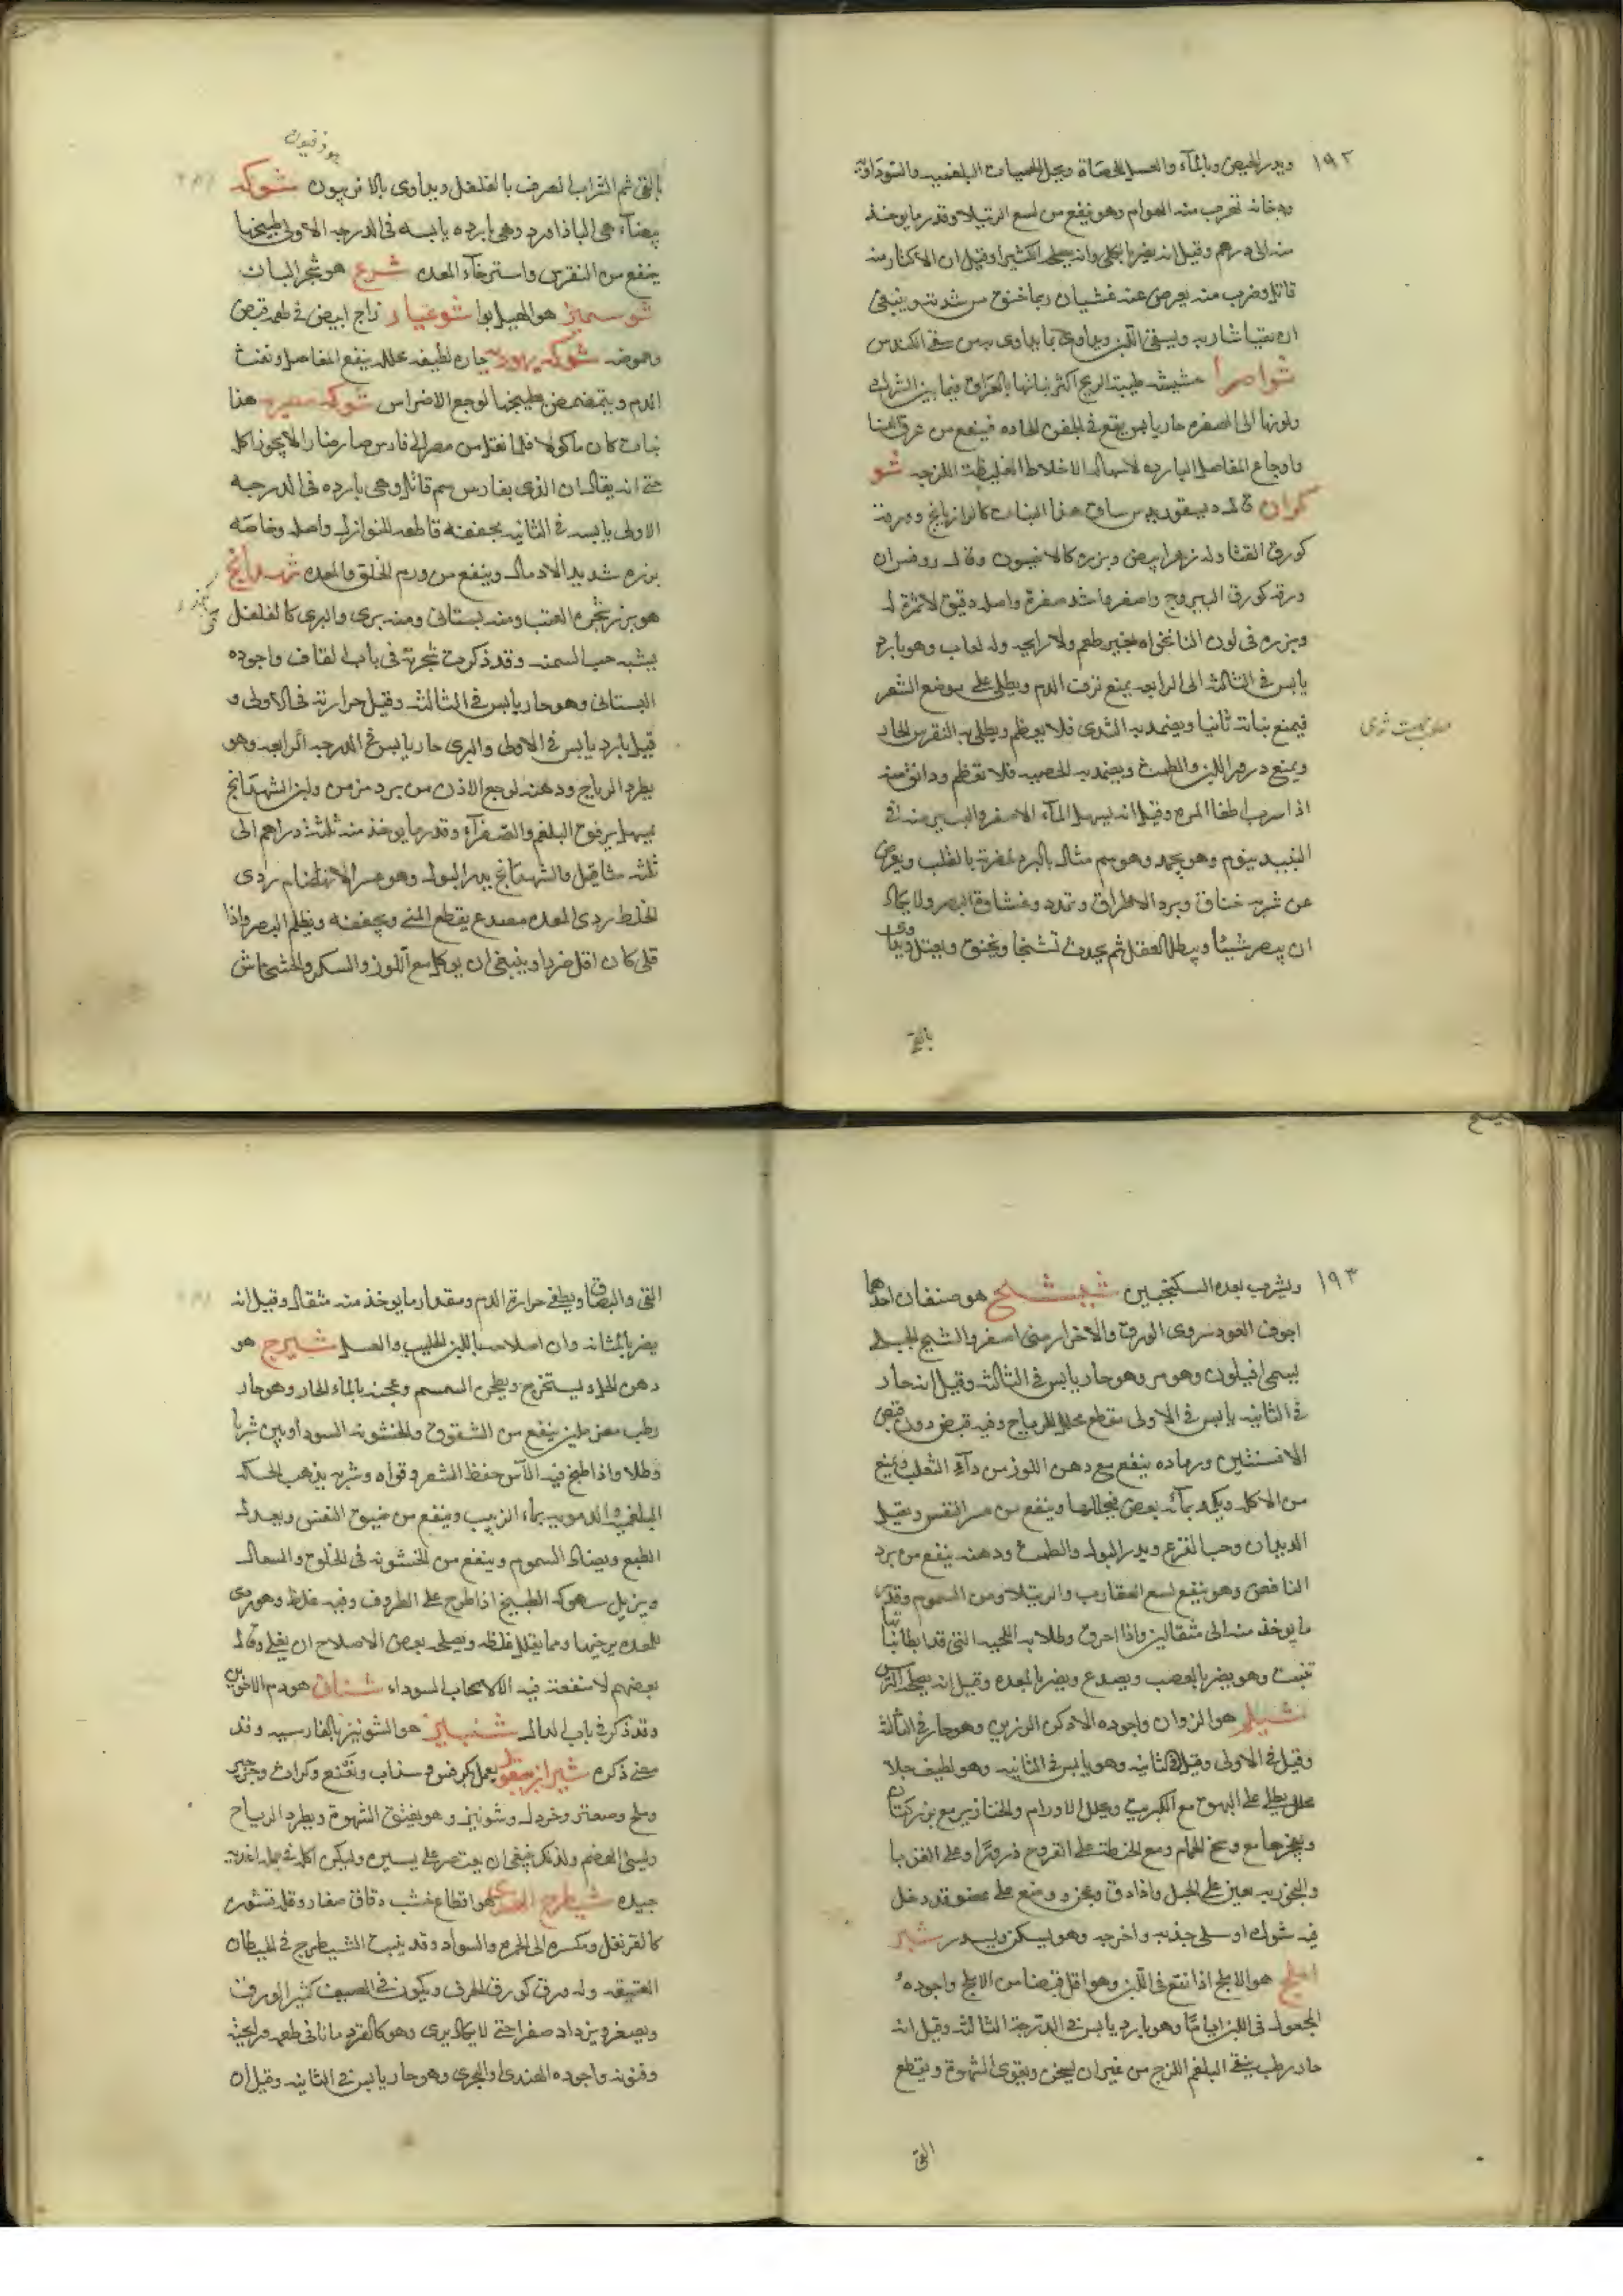 ١٩٢
ويدر الحيض وبالماء والعسل الحصاة ويحل الحميات البلغميه والسوداوية
ودخانه تهرب منه الهوام وهو ينفع من لسع الرتيلا وقدر ما يوخذ
منه الى درهم وقيل انه يضر بالكلى وانه يصلحه الكثيرا وقيل ان الاكثار منه
قاتل وضرب منه يعرض عنه غشيان ربما خنق من شدته وينبغى
ان يتقيا شاربه ويسقى اللبن ويداوى بما يداوى به من سقى الكندس
شواصرا حشيشه طيبة الريح اكثر نباتها بالعراق فيما بين الشوك
ولونها الى الصفره حار يابس يقع فى الحقن الحاده فينفع من عرق النسا
واوجاع المفاصل البارده لاسهاله الاخلاط الغليظة اللزجه شو
كران قال ديسقوريدس ساق هذا النبات كالرازيانج وورقه
كورق القثا وله زهر ابيض وبزره كالانيسون وقال روفس ان
ورقه كورق اليبروج واصفر واشد صفرة واصله دقيق لا ثمرة له
وبزره فى لون النانخواه بغير طعم ولا رايحه وله لعاب وهو بارد
يابس فى الثالثه الى الرابعه يمنع نزف الدم ويطلى على موضع الشعر
فيمنع نباته ثانيا ويضمد به الثدى فلا يعظم ويطلى به النقرس الحار
ويمنع درور اللبن والطمث ويضمد به الخصيه فلا تعظم ودانق منه
اذا شرب اطفا المره وقيل انه يسهل الماء الاصفر واليسير منه فى
النبيذ ينوم وهو يخمد وهو سم قتال بالبرد لمضرته بالقلب ويعرض
عن شربه خناق وبرد الاطراف وتمدد وغشاوة البصر ولا يكاد
ان يبصر شيئا ويبطل العقل ثم يحدث تشنجا ويخنق ويقتل ويداوى
بالقى
بالقى ثم الشراب الصرف بالفلفل ويداوى بالافربيون شوكه
بيضاء هى الباذاورد وهى بارده يابسه فى الدرجه الاولى طبيخها
ينفع من النقرس واسترخاء المعده شرع هو شجر البان
شوسمير هو الهيل بوا شوغيار زاج ابيض فى طعمه قبض
وحموضه شوكه يهوديه حاره لطيفه محلله ينفع المفاصل ونفث
الدم ويتمضمض بطبيخها لوجع الاضراس شوكه مصريه هذا
نبات كان ماكولا فلما نقل من مصر الى فارس صار ضارا لا يجوز اكله
حتى انه يقال ان الذى بفارس سم قاتل وهى بارده فى الدرجه
الاولى يابسه فى الثانيه مجففه قاطعه للنوازل واصله وخاصه
بزره شديد الادمال وينفع من ورم الحلق والمعده شهدانج
هو بزر شجره القنب ومنه بستانى ومنه برى والبرى كالفلفل
يشبه حب السمنه وقد ذكرت شجرته فى باب القاف واجوده
البستانى وهو حار يابس فى الثالثه وقيل حرارته فى الاولى و
قيل بارد يابس فى الاولى والبرى حار يابس فى الدرجه الرابعه وهو
يطرد الرياح ودهنه لوجع الاذن من برد مزمن ولبن الشهدانج
يسهل برفق البلغم والصفراء وقدر ما يوخذ منه ثلثة دراهم الى
ثلثه مثاقيل والشهدانج يدر البول وهو عسر الانهضام ردى
الخلط ردى المعده مصدع يقطع المنى ويجففه ويظلم البصر واذا
قلى كان اقل ضررا وينبغى ان يوكل مع اللوز والسكر والخشخاش
١٩٣
ويشرب بعده السكنجبين شيح هو صنفان احدهما
اجوف العود سروى الورق والاخر ارمنى اصفر والشيح الجبلى
يسمى افيلون وهو مر وهو حار يابس فى الثالثه وقيل انه حار
فى الثانيه يابس فى الاولى مقطع محلل للرياح وفيه قبض دون قبض
الافسنتين ورماده ينفع مع دهن اللوز من داء الثعلب ويمنع
من الاكله ويكمد بمائه بعض فيحللها وينفع من عسر النفس ويقتل
الديدان وحب القرع ويدر البول والطمث ودهنه ينفع من برد
النافض وهو ينفع لسع العقارب والرتيلا ومن السموم وقدر
ما يوخذ منه الى مثقالين واذا احرق وطلا به اللحيه التى قد ابطا نباتها
تنبت وهو يضر بالعصب ويصدع ويضر بالمعده وقيل انه يصلحه الترمس
شيلم هو الزوان واجوده الادكن الرزين وهو حار فى الثالثه
وقيل فى الاولى وقيل فى الثانيه وهو يابس فى الثانيه وهو لطيف جلا
محلل يطلى على البهق مع الكبريت ويحلل الاورام والخنازير مع بزر كتان
ويفجرها مع وسخ الحمام ومع الحنطة على القروح ذرورا وعلى القوبا
والبخور به يعين على الحبل واذا دق وعجن ووضع على عضو قد دخل
فيه شوك او سلى جذبه واخرجه وهو يسكن ويسدر شير
املج هو الاملج اذا نقع فى اللبن وهو اقل قبضا من الاملج واجوده
المجعول فى اللبن اياما وهو بارد يابس فى الدرجة الثالثه وقيل انه
حار رطب ينقى البلغم اللزج من غير ان يسخن ويقوى الشهوة ويقطع
القى
القى والبصاق ويطفى حرارة الدم ومقدار ما يوخذ منه مثقال وقيل انه
يضر بالمثانه وان اصلاحه باللبن الحليب والعسل شيرج هو
دهن الحل يستخرج ويطحن السمسم وعجنه بالماء الحار وهو حار
رطب مغر ملين ينفع من الشقوق والخشونه السوداويين شربا
وطلا واذا طبخ فيه الآس حفظ الشعر وقواه وشربه يذهب الحكه
البلغميه والدمويه بماء الزبيب وينفع من ضيق النفس ويعدل
الطبع ويضاد السموم وينفع من الخشونه فى الحلوق والسعال
ويزيل سهوكه الطبيخ اذا طرح على الظروف وفيه غلظ وهو ردى
للمعده يرخيها ومما يقلل غلظه ويصلحه بعض الاصلاح ان يغلى وقال
بعضهم لا منفعة فيه الا لاصحاب السوداء شيان هو دم الاخوين
وقد ذكر فى باب الدال شينيز هو الشونيز بالفارسيه وقد
مضى ذكره شيراز بقول يعمل بكرفس وسذاب ونعنع وكراث وجرجير
وملح وصعتر وخردل وشونيز وهو يفتق الشهوة ويطرد الرياح
ويسئ الهضم ولذلك ينبغى ان يقتصر على يسيره وليكن اكله فى جمله اغذيه
جيده شيطرج الهندى هو اقطاع خشب دقاق صغار وقلد قشوره
كالقرنفل ومكسره الى الحمره والسواد وقد ينبت الشيطرج فى الحيطان
العتيقه وله ورق كورق الحرف ويكون فى الصيف كثير الورق
ويصغر ويزداد صغرا حتى لا يكاد يرى وهو كالقردمانا فى طعمه ورايحته
وقوته واجوده الهندى والبحرى وهو حار يابس فى الثانيه وقيل ان